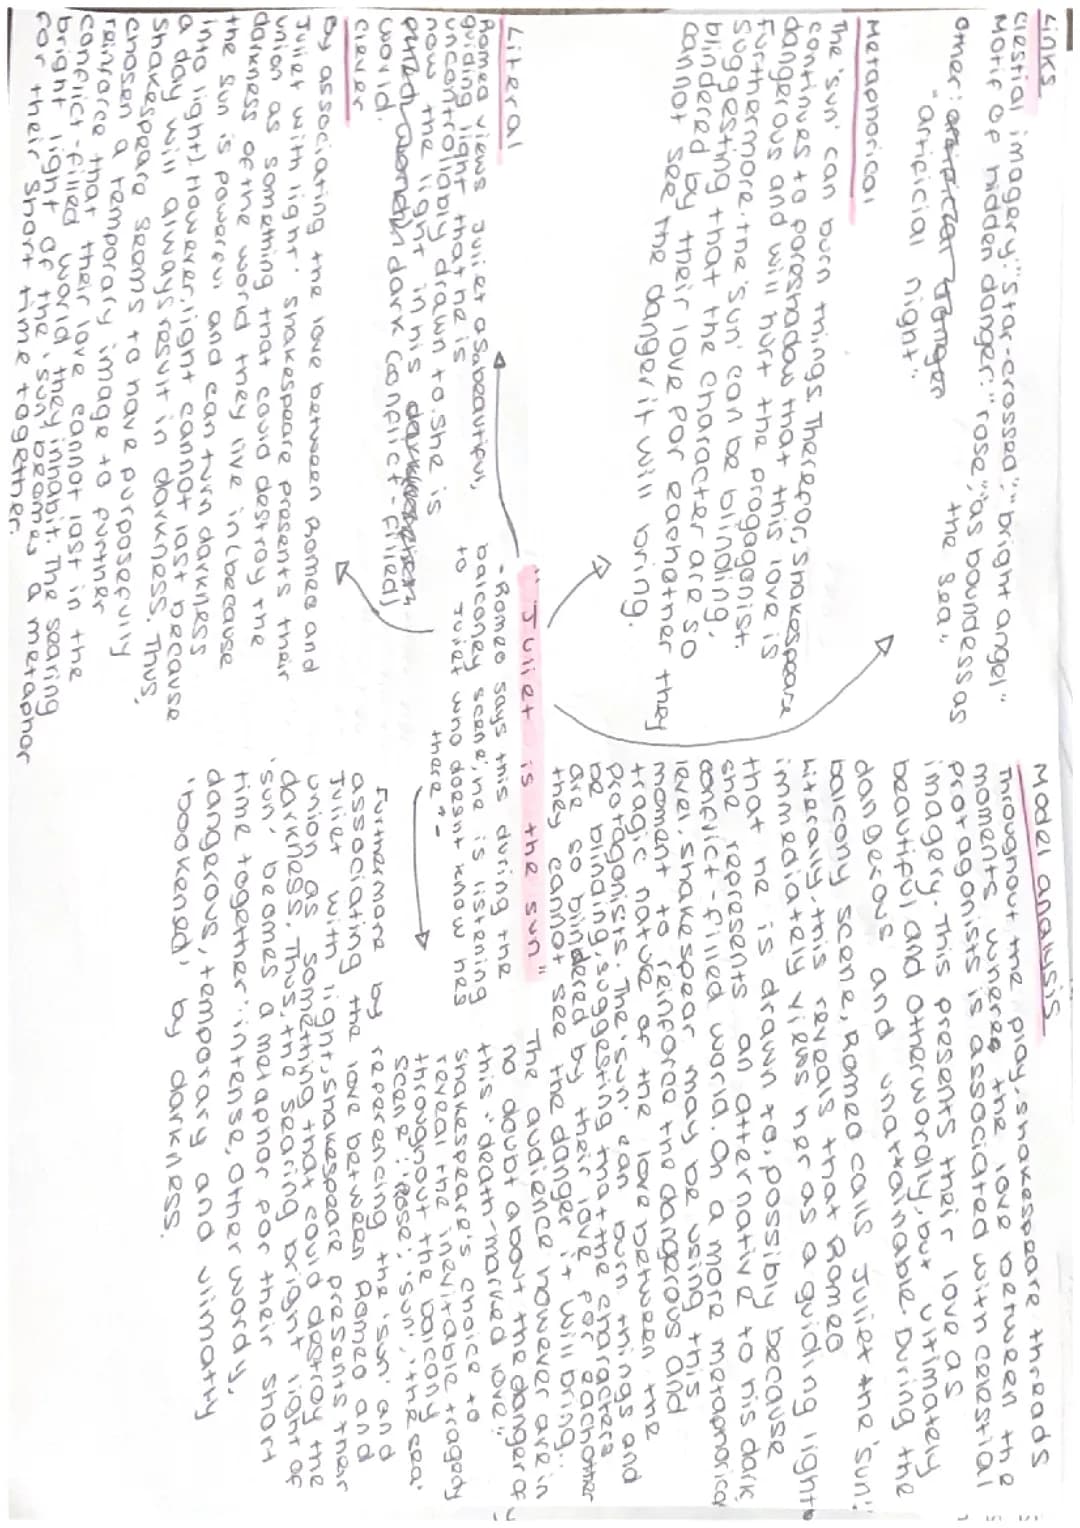 Links
clestial imagery: "star-crossed", "bright angel"
Motif of hidden danger: "rose", "as boundess as
other: the sea"
"artificial night"
Metaphorical
The 'sun' can burn things. Therefor, shakespeare
continues to foreshadow that this love is
dangerous and will hurt the protaganist.
Furthermore. the 'sun' can be blinding,
suggesting that the character are so
blindered by their love for eachother they
cannot see the danger it will bring.
Literal
Romeo views Juliet as a beautiful,
guiding light that he is
uncontrollably drawn to. She is
now the light in his
dark (conflict-filled)
world.
Clever
By associating the love between Romeo and
Juliet with light. Shakespeare presents their
union as something that could destroy the
darkness of the world they live in (because
the sun is powerful and can turn darkness
into light). However, light cannot last because
a day will always result in darkness. Thus,
Shakespeare seems to have purposefully
chosen a temporary image to further
reinforce that their love cannot last in the
conflict-filled world they inhabit. The searing
bright light of the 'sun' becomes a metaphor
for their short time together.
"Juliet is the sun"
- Romeo says this during the
balconey scene, he is listening
to Juliet who doesn't know hes
there -
Model analysis
Throughout the play, shakespeare threads
moments where the love between the
protagonists is associated with celestial
imagery. This presents their love as
beautiful and otherworldly, but ultimately
dangerous and unattainable. During the
balcony scene, Romeo calls Juliet the 'sun'.
Literally, this reveals that Romeo
immediately views her as a guiding light
that he is drawn to, possibly because
she represents an alternative to his dark,
conflict-filled world. On a more metaphorical
level, Shakespear may be using this
moment to reinforce the dangerous and
tragic nature of the love between the
protagonists. The 'sun' can burn things and
be blinding, suggesting that the characters
are so blindered by their love for eachother
they cannot see the danger it will bring.
The audience however are in
no doubt about the danger of
this "death-marked love".
Shakespeare's choice to
reveal the inevitable tragedy
throughout the balcony
scene: 'Rose', 'sun', 'the sea'
Furthermore by referencing the 'sun' and
associating the love between Romeo and
Juliet with light, shakespeare presents their
union as something that could destroy the
darkness. Thus, the searing bright light of
'sun' becomes a metaphor for their short
time together: intense, other wordy,
dangerous, temporary and ulimatly
'bookened' by darkness.